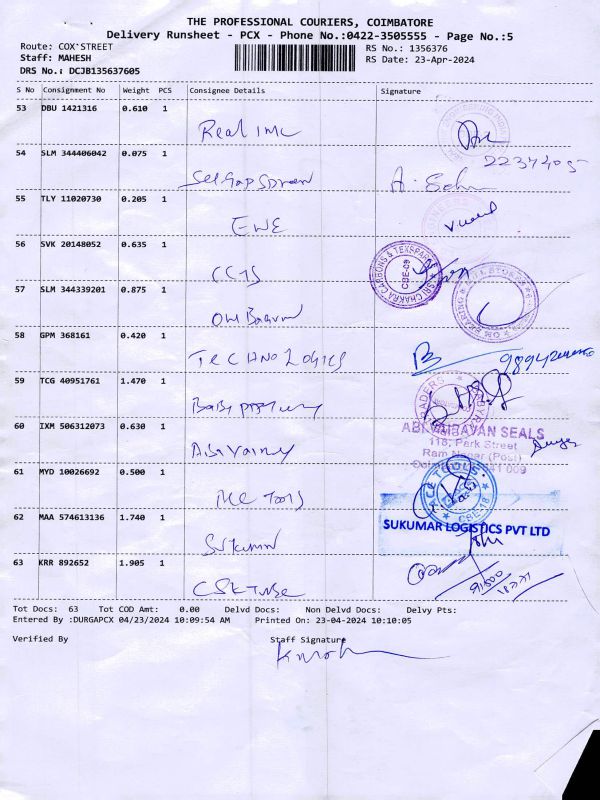 THE PROFESSIONAL COURIERS, COIMBATORE
Delivery Runsheet - PCX - Phone No.:0422-3505555 - Page No.:5
Route: COX'STREET
RS No.: 1356376
Staff: MAHESH
RS Date: 23-Apr-2024
DRS No.: DCJB135637605
S No Consignment No Weight PCS Consignee Details Signature
53 DBU 1421316 0.610 1
Real inc
54 SLM 344406042 0.075 1
2237405
55 TLY 11020730 0.205 1
EWE
56 SVK 20148052 0.635 1
SRI CHAKRA CARBONS & TEXSPARES CBE-09
57 SLM 344339201 0.875 1
58 GPM 368161 0.420 1
TECHNOLOGICS
59 TCG 40951761 1.470 1
60 IXM 506312073 0.630 1
ABI VAIRAVAN SEALS
118, Park Street
Ram Nagar (Post)
61 MYD 10026692 0.500 1
ACE TOOLS CBE-18
Ace Tools
62 MAA 574613136 1.740 1
SUKUMAR LOGISTICS PVT LTD
Sukumar
63 KRR 892652 1.905 1
CSK Tube
Tot Docs: 63 Tot COD Amt: 0.00 Delvd Docs: Non Delvd Docs: Delvy Pts:
Entered By :DURGAPCX 04/23/2024 10:09:54 AM Printed On: 23-04-2024 10:10:05
Verified By
Staff Signature